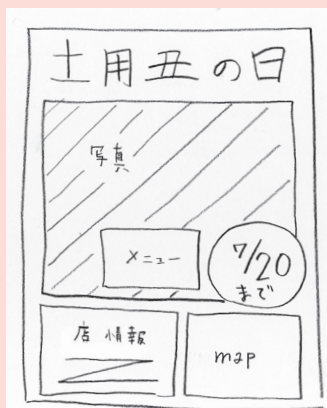 土用丑の日
写真
メニュー
7/20
まで
店情報
map